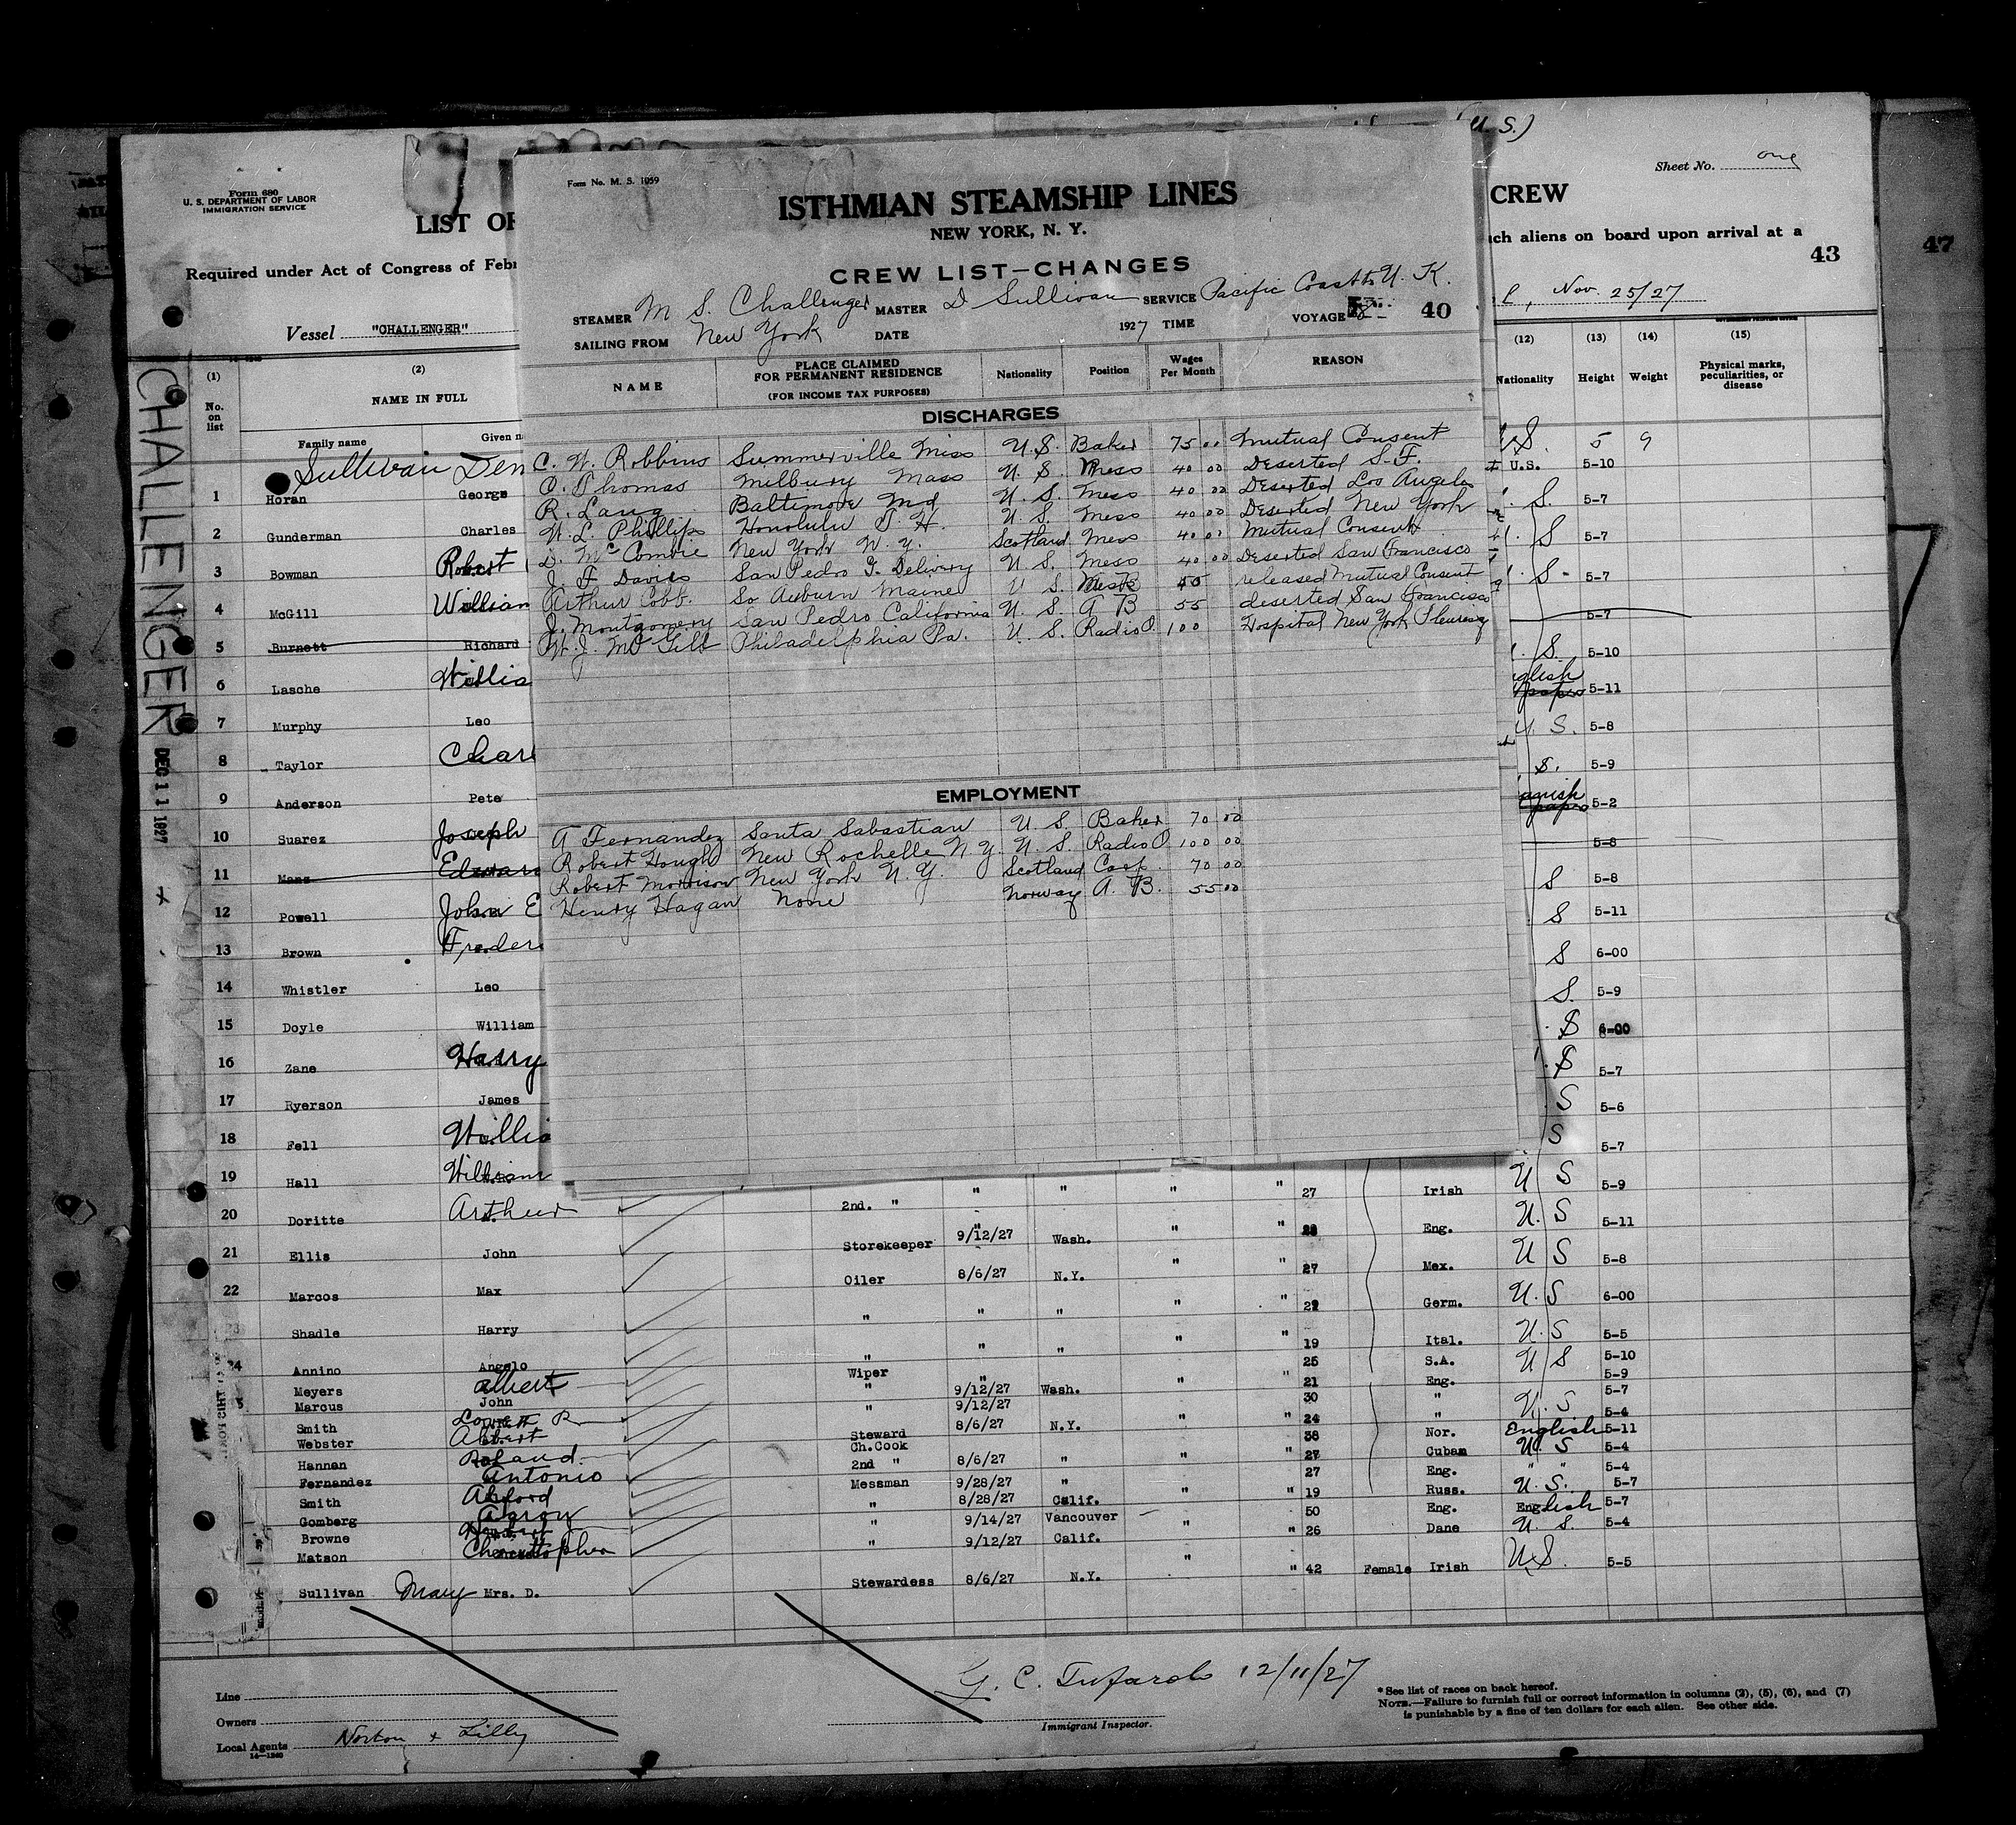 (U. S.)
Form 680
U. S. DEPARTMENT OF LABOR
IMMIGRATION SERVICE
LIST OF
Required under Act of Congress of Febr
Vessel "CHALLENGER"
Sheet No. one
CREW
ch aliens on board upon arrival at a
43
47
Nov. 25/27
Form No. M. S. 1059
ISTHMIAN STEAMSHIP LINES
NEW YORK, N. Y.
CREW LIST—CHANGES
STEAMER M S. Challenger MASTER D Sullivan SERVICE Pacific Coast to U. K.
SAILING FROM New York DATE 1927 TIME VOYAGE 40
NAME PLACE CLAIMED FOR PERMANENT RESIDENCE (FOR INCOME TAX PURPOSES) Nationality Position Wages Per Month REASON
DISCHARGES
C. W. Robbins Summerville Miss U.S. Baker 75 00 Mutual Consent
C. Thomas Milbury Mass U. S. Mess 40 00 Deserted S.F.
R. Lang Baltimore Md U. S. Mess 40 00 Deserted Los Angeles
W. L. Phillips Honolulu T. H. U. S. Mess 40 00 Deserted New York
D. McCombie New York N. Y. Scotland Mess 40 00 Mutual Consent
J. F. Davies San Pedro G. Delivery U. S. Mess 40 00 Deserted San Francisco
Arthur Cobb. So Auburn Maine U S. released Mutual Consent
J. Montgomery San Pedro California U. S. A B 55 deserted San Francisco
Philadelphia Pa. U. S. Radio O. 100 Hospital New York Pleurisy
EMPLOYMENT
A Fernandez Santa Sabastian U. S. Baker 70 00
Robert Hough New Rochelle N.Y. U. S. Radio O 100 00
Robert Morrison New York N.Y. Scotland 70 00
Henry Hagan None Norway A. B. 55 00
CHALLENGER
DEC 11 1927
(1) No. on list
(2) NAME IN FULL
Family name Given n
(12) Nationality
(13) Height
(14) Weight
(15) Physical marks, peculiarities, or disease
Sullivan Den U.S. 5 9
1 Horan George U.S. 5-10
2 Gunderman Charles S. 5-7
3 Bowman Robert S 5-7
4 McGill William S- 5-7
5 Burnett Richard 5-7
6 Lasche Willia S. 5-10
7 Murphy Leo 5-11
8 Taylor Char U S. 5-8
9 Anderson Pete S. 5-9
10 Suarez Joseph 5-2
11 Manz Edwar 5-8
12 Powell John E S 5-8
13 Brown Freder S 5-11
14 Whistler Leo S 6-00
15 Doyle William S. 5-9
16 Zane Harry S 6-00
17 Ryerson James S 5-7
18 Fell Willia S 5-6
19 Hall William S 5-7
20 Doritte Arthur 2nd. " " " " " 27 Irish U S 5-9
21 Ellis John Storekeeper 9/12/27 Wash. " " Eng. U. S 5-11
22 Marcos Max Oiler 8/6/27 N.Y. " " 27 Mex. U S 5-8
Shadle Harry " " " " " Germ. U. S 6-00
24 Annino Angelo " " " " " 19 Ital. U. S 5-5
Meyers Albert Wiper " 25 S.A. U S 5-10
Marcus John " 9/12/27 Wash. " " 21 Eng. 5-9
Smith " 9/12/27 30 " U. S 5-7
Webster Albert Steward 8/6/27 N.Y. " " 24 " 5-4
Hannan Roland Ch.Cook 38 Nor. English 5-11
Fernandez Antonio 2nd " 8/6/27 " " " 27 Cuban U. S 5-4
Smith Messman 9/28/27 " 27 Eng. " " 5-4
Gomberg Aaron " 8/28/27 Calif. " " 19 Russ. U. S. 5-7
Browne " 9/14/27 Vancouver 50 Eng. English 5-7
Matson Christopher " 9/12/27 Calif. " " 26 Dane U. S. 5-4
Sullivan Mary Mrs. D. Stewardess 8/6/27 N.Y. " " 42 Female Irish U.S. 5-5
Line
Owners
Local Agents Norton & Lilly
14—1240
12/11/27
Immigrant Inspector.
*See list of races on back hereof.
NOTE.—Failure to furnish full or correct information in columns (2), (5), (6), and (7)
is punishable by a fine of ten dollars for each alien. See other side.